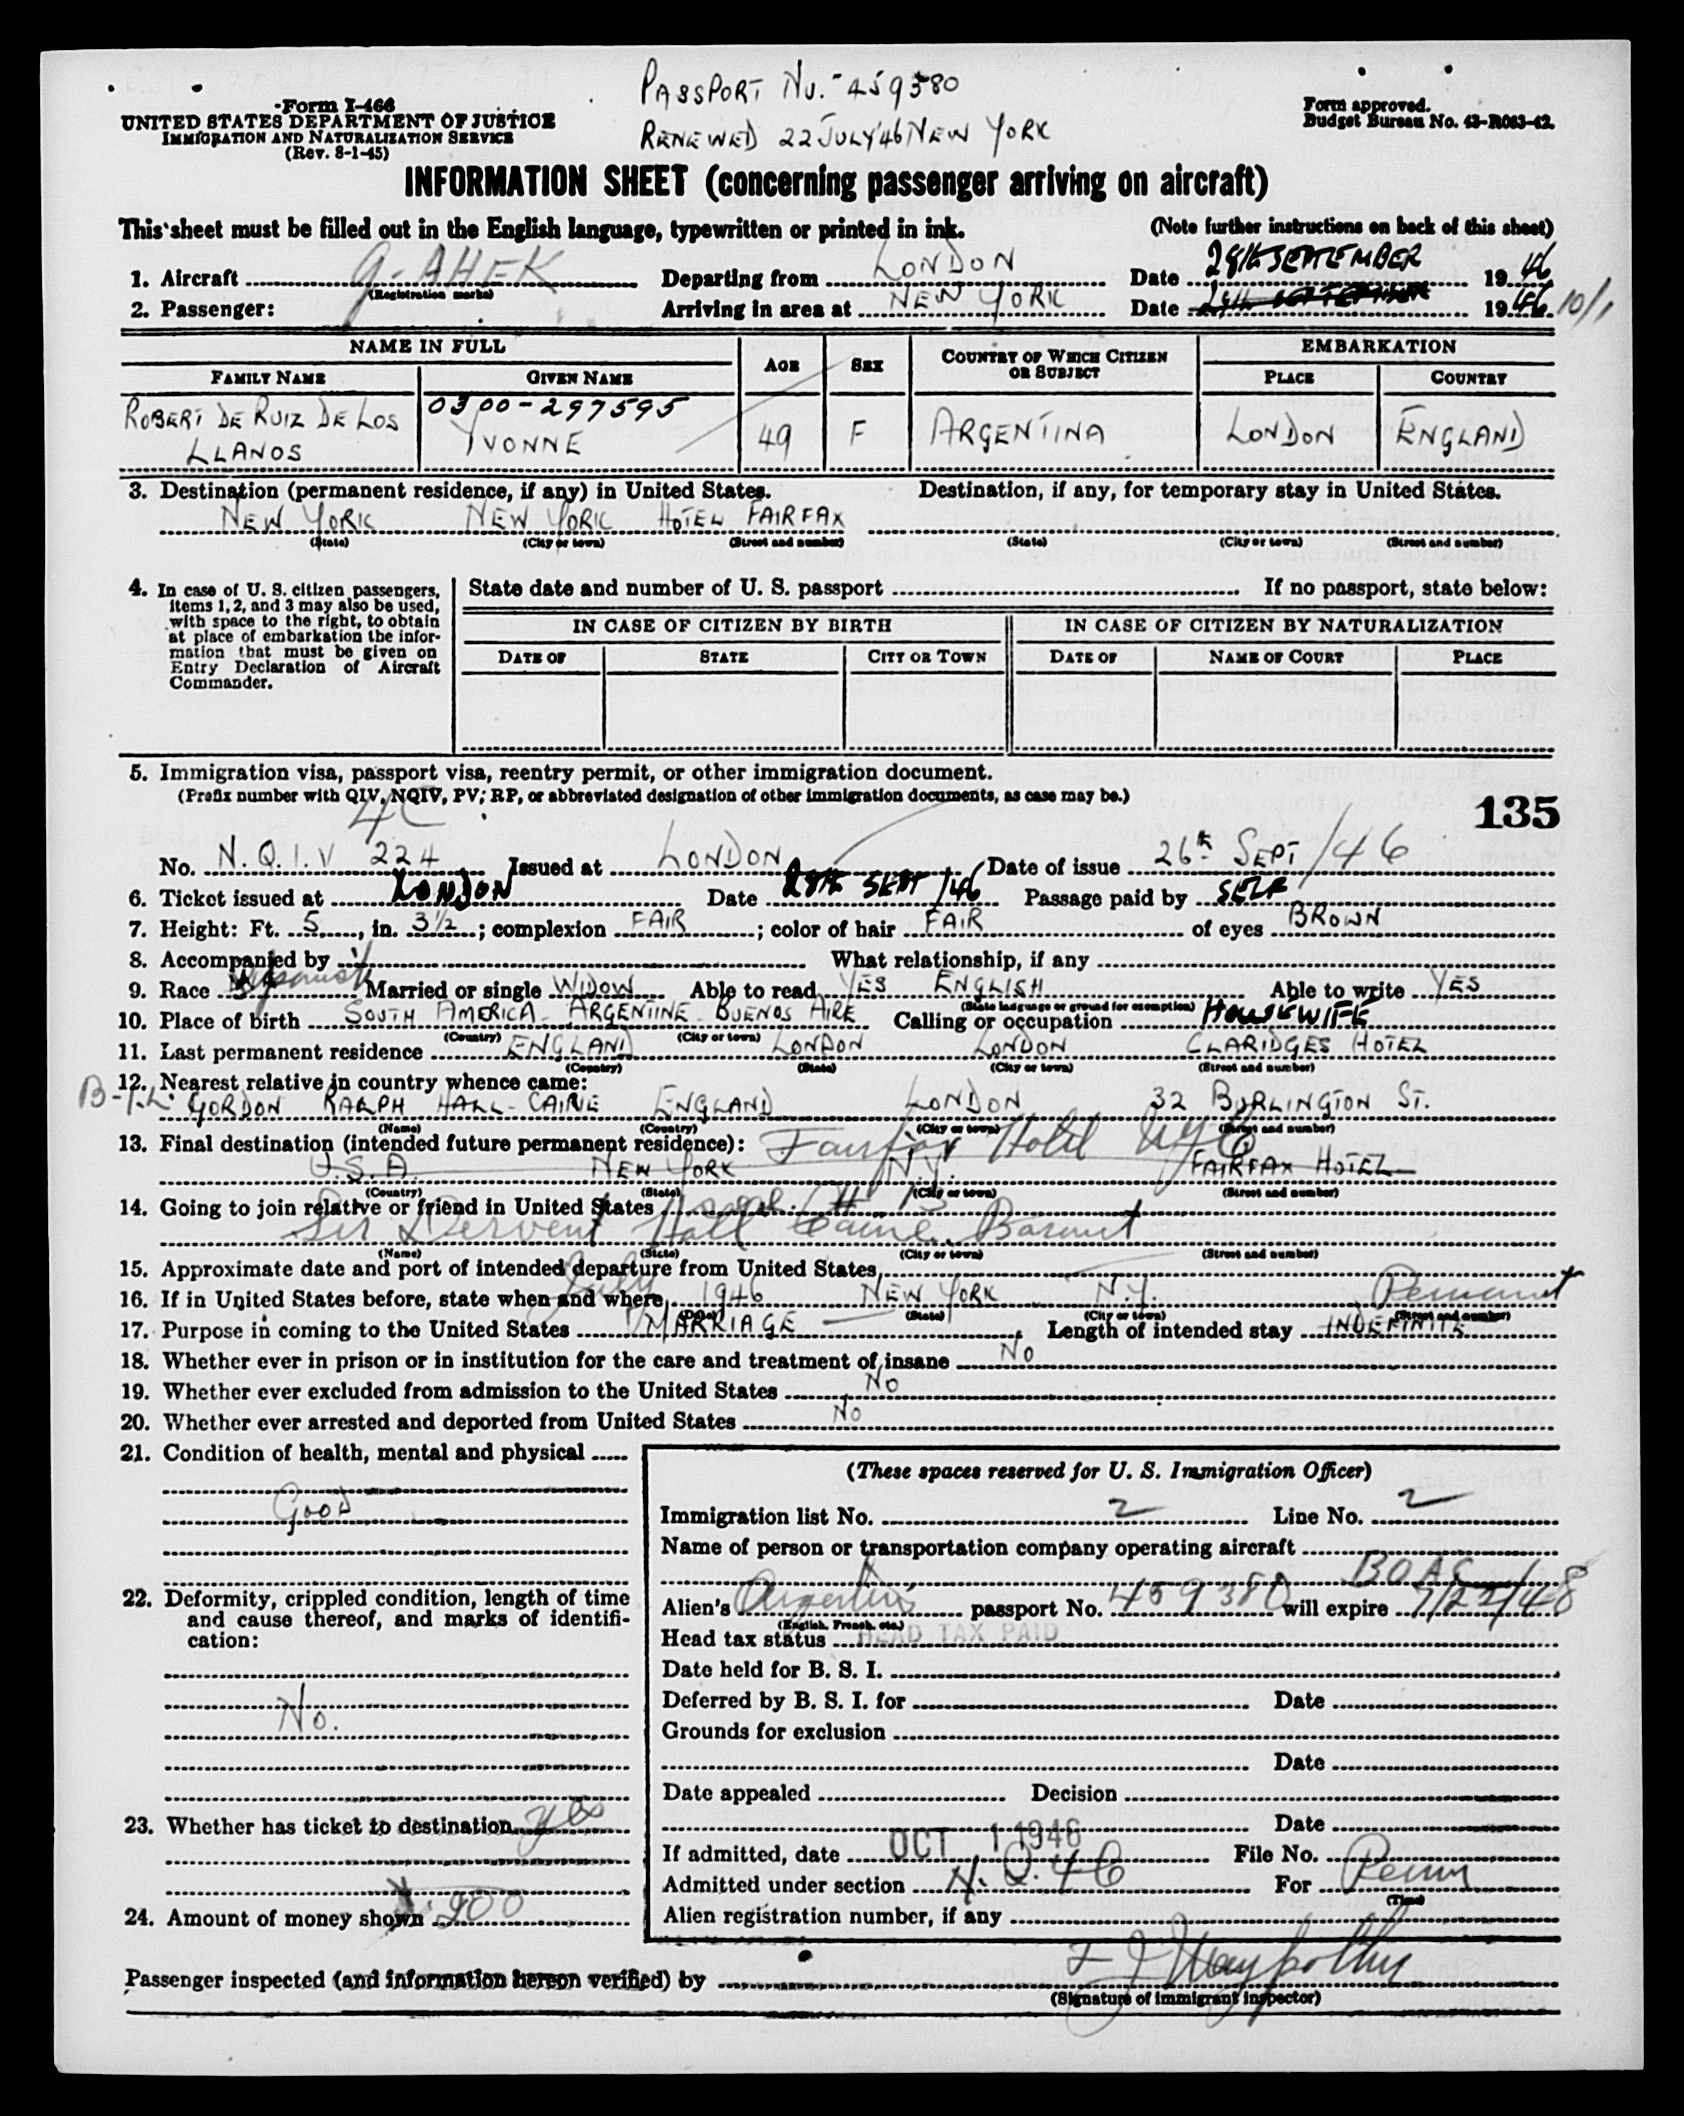 PASSPORT No. - 459380
RENEWED 22 JULY '46 NEW YORK
Form I-466
UNITED STATES DEPARTMENT OF JUSTICE
IMMIGRATION AND NATURALIZATION SERVICE
(Rev. 8-1-45)
Form approved.
Budget Bureau No. 43-R083-42.
INFORMATION SHEET (concerning passenger arriving on aircraft)
This sheet must be filled out in the English language, typewritten or printed in ink. (Note further instructions on back of this sheet)
1. Aircraft G-AHEK Departing from LONDON Date 28th SEPTEMBER 1946
(Registration marks)
2. Passenger: Arriving in area at NEW YORK Date 1946 10/1
NAME IN FULL AGE SEX COUNTRY OF WHICH CITIZEN OR SUBJECT EMBARKATION
FAMILY NAME GIVEN NAME PLACE COUNTRY
0300-297595
ROBERT DE RUIZ DE LOS LLANOS YVONNE 49 F ARGENTINA LONDON ENGLAND
3. Destination (permanent residence, if any) in United States. Destination, if any, for temporary stay in United States.
NEW YORK NEW YORK HOTEL FAIRFAX
(State) (City or town) (Street and number) (State) (City or town) (Street and number)
4. In case of U. S. citizen passengers,
items 1, 2, and 3 may also be used,
with space to the right, to obtain
at place of embarkation the infor-
mation that must be given on
Entry Declaration of Aircraft
Commander.
State date and number of U. S. passport If no passport, state below:
IN CASE OF CITIZEN BY BIRTH IN CASE OF CITIZEN BY NATURALIZATION
DATE OF STATE CITY OR TOWN DATE OF NAME OF COURT PLACE
5. Immigration visa, passport visa, reentry permit, or other immigration document.
(Prefix number with QIV, NQIV, PV; RP, or abbreviated designation of other immigration documents, as case may be.)
135
4C
No. N.Q.I.V 224 Issued at LONDON Date of issue 26th SEPT /46
6. Ticket issued at LONDON Date 28th SEPT /46 Passage paid by SELF
7. Height: Ft. 5, in. 3½; complexion FAIR; color of hair FAIR of eyes BROWN
8. Accompanied by What relationship, if any
9. Race Spanish Married or single WIDOW Able to read YES ENGLISH Able to write YES
(State language or ground for exemption)
10. Place of birth SOUTH AMERICA - ARGENTINE - BUENOS AIRE Calling or occupation HOUSEWIFE
(Country) (City or town)
11. Last permanent residence ENGLAND LONDON LONDON CLARIDGES HOTEL
(Country) (State) (City or town) (Street and number)
12. Nearest relative in country whence came:
B-i-L. GORDON RALPH HALL-CAINE ENGLAND LONDON 32 BURLINGTON ST.
(Name) (Country) (City or town) (Street and number)
13. Final destination (intended future permanent residence): Fairfax Hotel NYC
U.S.A. NEW YORK N.Y. FAIRFAX HOTEL
(Country) (State) (City or town) (Street and number)
14. Going to join relative or friend in United States
Sir Derwent Hall Caine Baronet
(Name) (State) (City or town) (Street and number)
15. Approximate date and port of intended departure from United States,
16. If in United States before, state when and where, July 1946 NEW YORK N.Y.
(Date) (State) (City or town) (Street and number)
17. Purpose in coming to the United States MARRIAGE, Length of intended stay INDEFINITE
18. Whether ever in prison or in institution for the care and treatment of insane No
19. Whether ever excluded from admission to the United States No
20. Whether ever arrested and deported from United States No
21. Condition of health, mental and physical
GOOD
22. Deformity, crippled condition, length of time
and cause thereof, and marks of identifi-
cation:
No.
23. Whether has ticket to destination yes
24. Amount of money shown 200
(These spaces reserved for U. S. Immigration Officer)
Immigration list No. 2 Line No. 2
Name of person or transportation company operating aircraft
BOAC
Alien's Argentine passport No. 459380 will expire 7/22/48
(English, French, etc.)
Head tax status HEAD TAX PAID
Date held for B. S. I.
Deferred by B. S. I. for Date
Grounds for exclusion
Date
Date appealed Decision
Date
If admitted, date OCT 1 1946 File No.
Admitted under section N.Q. 4C For Perm
(Time)
Alien registration number, if any
Passenger inspected (and information hereon verified) by
(Signature of immigrant inspector)